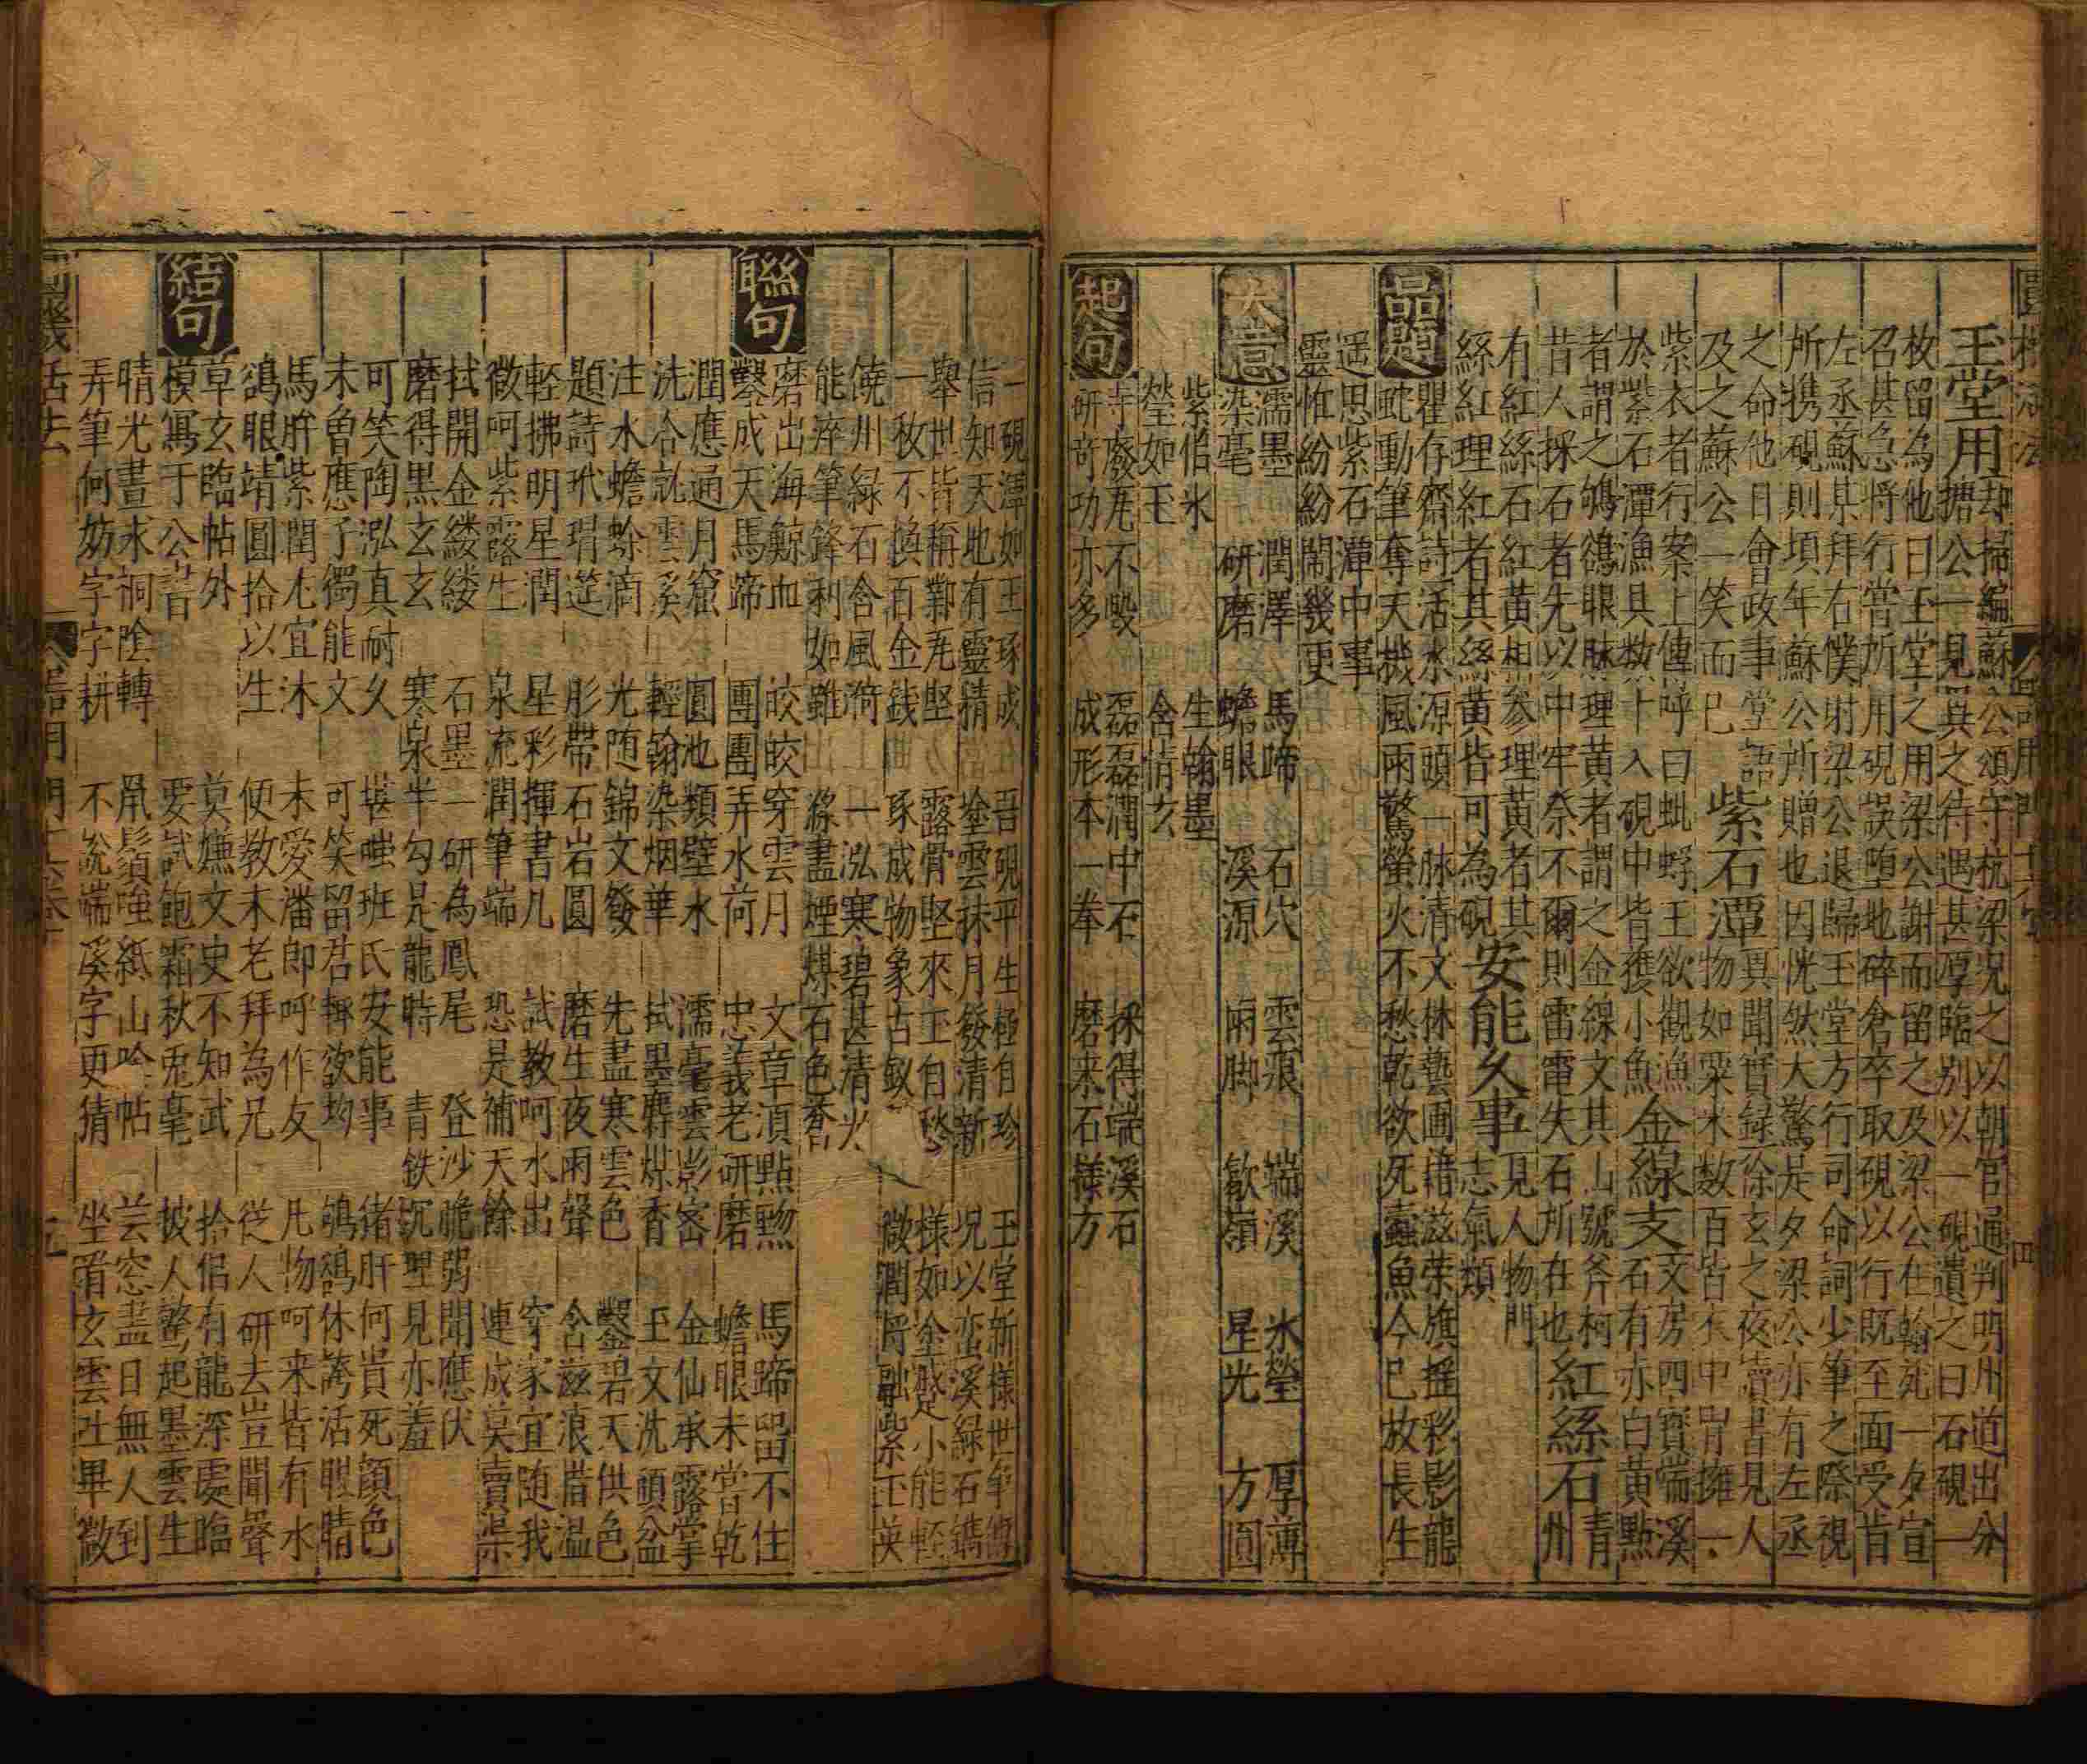 圓機活法
八 器用門 十八卷
四
玉堂用
却掃編蘇公頌守杭梁况之以朝官通判明州道出分
搪公一見異之待遇甚厚臨别以一硯遺之曰石硯一
枚留為他日玉堂之用梁公謝而留之及梁公在翰苑一夕宣
召甚急將行嘗所用硯誤墮地碎倉卒取硯以行既至面受肯
左丞蘇某拜右僕射梁公退歸玉堂方行司命詞少筆之際視
所携硯則頃年蘇公所贈也因恍然大驚是夕梁公亦有左丞
之命他日會政事堂語
及之蘇公一笑而已
紫石潭
異聞實録徐玄之夜讀書見人
物如粟米数百皆衣中冑擁一
紫衣者行案上傳呼曰蚍蜉王欲觀漁
於紫石潭漁具数十入硯中皆獲小魚
金線支
文房四寶端溪
石有亦白黃點
者謂之鴝鵒眼脉理黃者謂之金線文其山號斧柯
昔人採石者先以中牢祭不爾則雷電失石所在也
紅絲石
青
州
有紅絲石紅黃相参理黃者其
絲紅理紅者其絲黃皆可為硯
安能久事
見人物門
志氣類
品題
瞿存齋詩活水源頭一脉清文林藝圃藉滋荣旗摇彩影龍
虵動筆奪天機風雨驚螢火不愁乾欲死蠹魚今已放長生
遥思紫石潭中事
靈惟紛紛鬧幾更
大意
濡墨 潤澤 馬蹄 石穴 雲痕 端溪 氷瑩 厚薄
染毫 研磨 蟾眼 溪源 兩脚 歙嶺 星光 方圓
紫伯氷 生翰墨
瑩如玉 含情玄
起句
寺廢尨不毀 磊磊潤中石 採得端溪石
研奇功亦多 成形本一拳 磨来石様方
一硯潭如玉琢成 吾硯平生極自珍 玉堂新様世争
信知天地有靈精 塗雲抹月發清新 况以蛮溪緑石鐫
舉世皆稱鄴尨堅 露骨堅來玉自愁 様如金
一枚不換百金銭 琢成物象古 微潤
饒川緑石含風漪 一泓寒碧甚清
能淬筆鋒利如錐 滌盡煙煤石色蒼
聯句
磨出海鯨血 皎皎穿雲月 文章湏點㸃 馬蹄留不住
鑿成天馬蹄 團團弄水荷 忠義老研磨 蟾眼未嘗乾
潤應通月窟 圓池類壁水 濡毫雲影密 金仙承露掌
洗合就雲溪 輕翰染烟華 拭墨麝煤香 玉文洗頭盆
注水蟾蜍滴 光随錦文發 先盡寒雲色 鑿碧天供色
題詩玳瑁筵 彤帶石岩圓 磨生夜雨聲 含滋浪借温
輕拂明星潤 星彩揮書几 試教呵水出 穿家宜随我
微呵紫露生 泉流潤筆端 恐是補天餘 連成莫賣
拭開金縷縷 石墨一研為鳳尾 登沙脆弱聞應伏
磨得黑玄玄 寒泉半勾是龍時 青鉄沉埋見亦羞
可笑陶泓真耐久 堪嗤班氏安能事 猪肝何貴死顔色
未魯應子獨能文 可笑留君輒欲均 鴝鵒休誇活眼睛
馬肝紫潤尤宜沐 未愛潘郎呼作友 凡物呵来皆有水
鴝眼靖圓拾以生 便教米老拜為兄 從人研去豈聞聲
草玄臨帖外 莫嫌文史不知武 拾侣有龍深處臨
模寫于公書 要試飽霜秋兎毫 披人驚起墨雲生
結句
晴光晝永祠陰轉 鼡鬚唯紙山吟帖 芸窓盡日無人到
弄筆何妨字字耕 不說端溪字更猜 坐看玄雲吐畢微